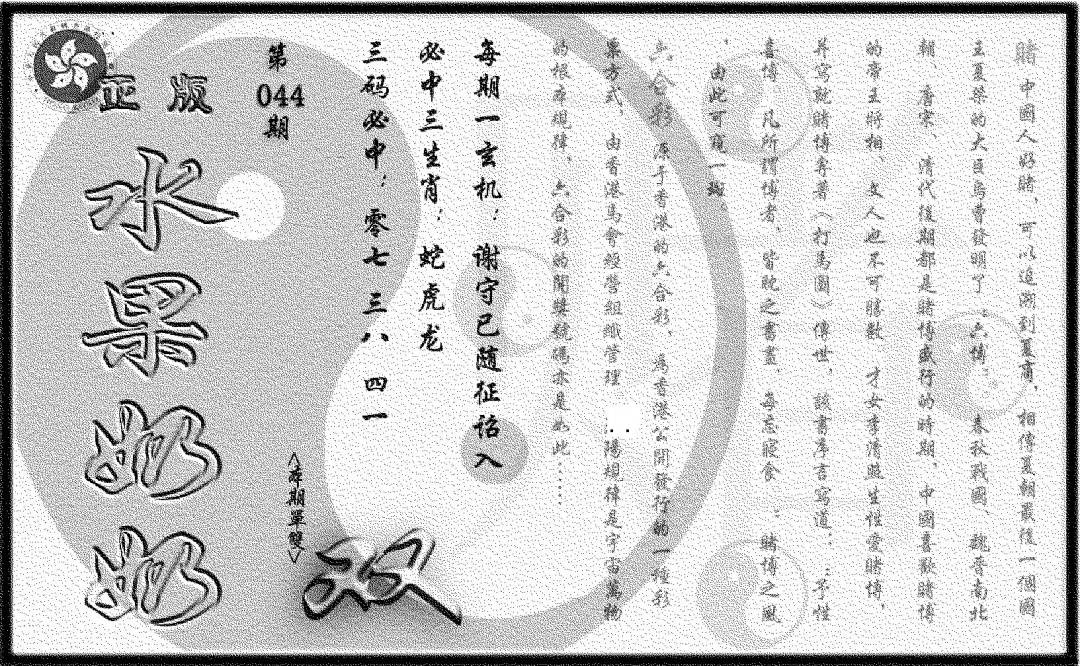 賭中國人好賭，可以追溯到夏商，相傳夏朝最後一個國
王夏桀的大臣烏曹發明了：六博：春秋戰國、魏晉南北
朝、唐宋、清代後期都是賭博盛行的時期，中國喜歡賭博
的帝王將相、文人也不可勝數 才女李清照生性愛賭博，
并寫就賭博專著（打馬圖）傳世，該書序言寫道：：予性
喜博 凡所謂博者，皆耽之書畫，每忘寢食 ：賭博之風
，由此可窺一斑。
六合彩 源于香港的六合彩，為香港公開發行的一種彩
票方式，由香港馬會經營組織管理 ..陽規律是宇宙萬物
的根本規律，六合彩的開獎號碼亦是如此……
每期一玄机：谢守已随征诏入
必中三生肖：蛇虎龙
三码必中：零七 三八 四一
第
044
期
<本期單雙>
双
正版
水果奶奶